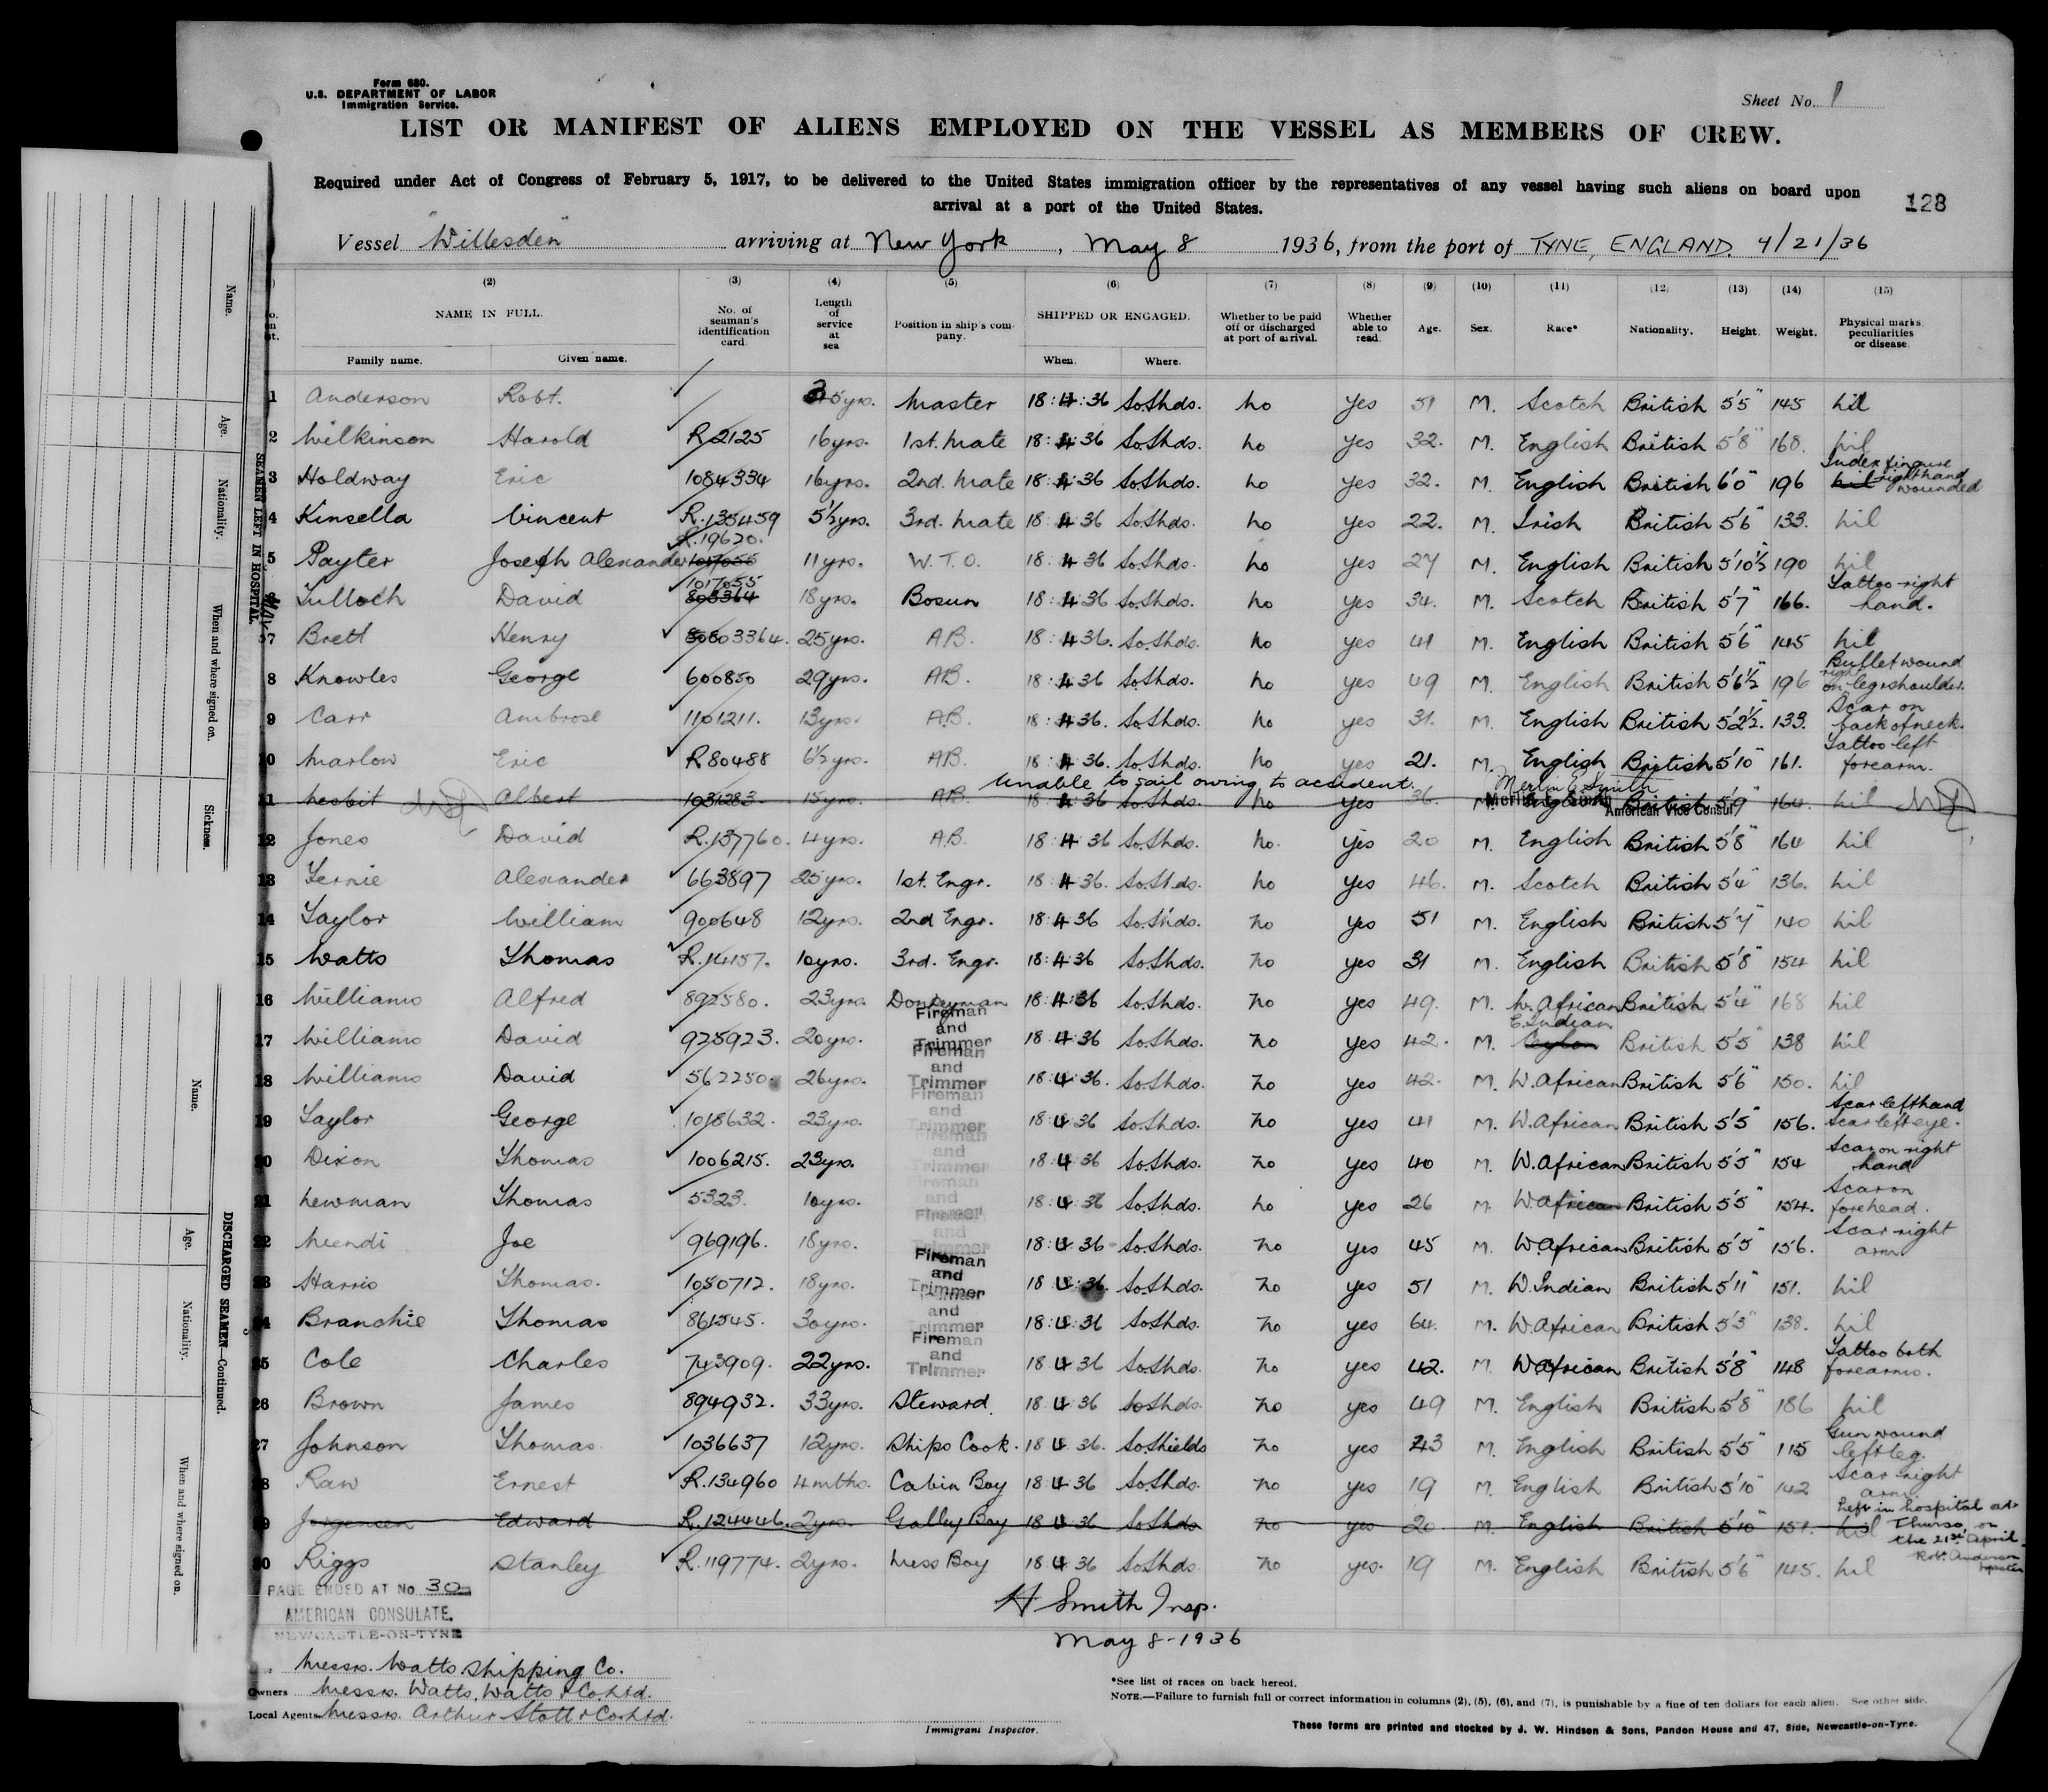 Form 680.
U.S. DEPARTMENT OF LABOR
Immigration Service.
Sheet No. 1
LIST OR MANIFEST OF ALIENS EMPLOYED ON THE VESSEL AS MEMBERS OF CREW.
Required under Act of Congress of February 5, 1917, to be delivered to the United States immigration officer by the representatives of any vessel having such aliens on board upon
arrival at a port of the United States.
128
Vessel "Willesden" arriving at New York, May 8 1936, from the port of TYNE, ENGLAND. 4/21/36
(2) (3) (4) (5) (6) (7) (8) (9) (10) (11) (12) (13) (14) (15)
NAME IN FULL. Family name. Given name. No. of seaman's identification card. Length of service at sea Position in ship's company. SHIPPED OR ENGAGED. When. Where. Whether to be paid off or discharged at port of arrival. Whether able to read. Age. Sex. Race* Nationality. Height. Weight. Physical marks, peculiarities or disease.
1 Anderson Robt. 35yrs. Master 18:4:36 So.Shds. No Yes 51 M. Scotch British 5'5" 145 Nil
2 Wilkinson Harold R2125 16yrs. 1st. Mate 18:4:36 So.Shds. No Yes 32. M. English British 5'8" 168. Nil
3 Holdway Eric 1084334 16yrs. 2nd. Mate 18:4:36 So.Shds. No Yes 32. M. English British 6'0" 196 Nil Index fingure right hand wounded
4 Kinsella Vincent R.135459 5½yrs. 3rd. Mate 18 4 36 So.Shds. No Yes 22. M. Irish British 5'6" 133. Nil
5 Payter Joseph Alexander R.19620. 1017055 11yrs. W.T.O. 18:4 36 So.Shds. No Yes 27 M. English British 5'10½ 190 Nil
6 Tulloch David 1017055 803364 18yrs. Bosun 18:4 36 So.Shds. No Yes 34. M. Scotch British 5'7" 166. Tattoo right hand.
7 Brett Henry 803364. 25yrs. A.B. 18:4 36. So.Shds. No Yes 41 M. English British 5'6" 145 Nil
8 Knowles George 600850 29yrs. A.B. 18:4 36 So.Shds. No Yes 49 M. English British 5'6½" 196 Bullet wound right on leg & shoulder.
9 Carr Ambrose 1101211. 13yrs. A.B. 18:4 36. So.Shds. No Yes 31. M. English British 5'2½". 133. Scar on back of neck.
10 Marlow Eric R80488 6½yrs. A.B. 18 4 36. So.Shds. No Yes 21. M. English British 5'10" 161. Tattoo left forearm.
Unable to sail owing to accident. Merlin E. Smith
Merlin E. Smith
American Vice Consul
11 Nesbit Albert 1031283 15yrs. A.B. 18 4 36 So.Shds. No Yes 36. M. English British 5'9" 164. Nil
12 Jones David R.137760. 4yrs. A.B. 18:4 36 So.Shds. No. Yes 20 M. English British 5'8" 164 Nil
13 Fernie Alexander 663897 25yrs. 1st. Engr. 18 4 36. So.Shds. No Yes 46. M. Scotch British 5'4" 136. Nil
14 Taylor William 900648 12yrs. 2nd Engr. 18:4 36 So.Shds. No Yes 51 M. English British 5'7" 140 Nil
15 Watts Thomas R.14157. 10yrs. 3rd. Engr. 18:4:36 So.Shds. No Yes 31 M. English British 5'8" 154 Nil
16 Williams Alfred 892580. 23yrs. Donkeyman 18:4:36 So.Shds. No Yes 49. M. W. African British 5'4" 168 Nil
17 Williams David 925923. 20yrs. Fireman and Trimmer 18:4:36 So.Shds. No Yes 42. M. E. Indian Ceylon British 5'5" 138 Nil
18 Williams David 562250 26yrs. Fireman and Trimmer 18:4:36. So.Shds. No Yes 42. M. W. African British 5'6" 150. Nil
19 Taylor George 1018632. 23yrs. Fireman and Trimmer 18:4:36 So.Shds. No Yes 41 M. W. African British 5'5" 156. Scar left hand Scar left eye.
20 Dixon Thomas 1006215. 23yrs. Fireman and 18:4:36 So.Shds. No Yes 40 M. W. African British 5'5" 154 Scar on right hand
21 Newman Thomas 5323. 10yrs. Fireman and 18:4:36 So.Shds. No Yes 26 M. W. African British 5'5" 154. Scar on forehead.
22 Mendi Joe 969196. 18yrs. Fireman and Trimmer 18:4:36 So.Shds. No Yes 45 M. W. African British 5'5" 156. Scar right arm
23 Harris Thomas. 1050712. 18yrs. Fireman and Trimmer 18 4:36. So.Shds. No Yes 51 M. W. Indian British 5'11" 151. Nil
24 Branchie Thomas 861545. 30yrs. and Trimmer 18:4:36 So.Shds. No Yes 64. M. W. African British 5'3" 138. Nil
25 Cole Charles 743909. 22yrs. Fireman and Trimmer 18 4 36 So.Shds. No Yes 42. M. W. African British 5'8" 148 Tattoo both forearms.
26 Brown James 894932. 33yrs. Steward. 18 4 36 So.Shds. No Yes 49 M. English British 5'8" 186 Nil
27 Johnson Thomas 1036637 12yrs. Ships Cook. 18 4 36. So.Shields No Yes 43 M. English British 5'5" 115 Gun wound left leg.
28 Raw Ernest R.134960 4mths. Cabin Boy 18 4 36 So.Shds. No Yes 19 M. English British 5'10" 142 Scar right arm.
29 Jorgensen Edward R.124446. 2yrs. Galley Boy 18 4 36 So.Shds No Yes 20 M. English British 5'10" 151. Nil Left in hospital at Thurso on the 21st April. Robt. Anderson Master
30 Riggs Stanley R.119774. 2yrs. Mess Boy 18 4 36 So.Shds. No Yes. 19 M. English British 5'6" 145. Nil
PAGE ENDED AT No. 30
AMERICAN CONSULATE.
NEWCASTLE-ON-TYNE
H Smith Insp.
May 8-1936
Messrs. Watts Shipping Co.
Owners Messrs. Watts, Watts & Co. Ltd.
Local Agents Messrs. Arthur Stott & Co. Ltd.
Immigrant Inspector.
*See list of races on back hereof.
NOTE.—Failure to furnish full or correct information in columns (2), (5), (6), and (7), is punishable by a fine of ten dollars for each alien. See other side.
These forms are printed and stocked by J. W. Hindson & Sons, Pandon House and 47, Side, Newcastle-on-Tyne.
SEAMEN LEFT IN HOSPITAL
Name.
Age.
Nationality.
When and where signed on.
Sickness.
DISCHARGED SEAMEN—Continued.
Name.
Age.
Nationality.
When and where signed on.